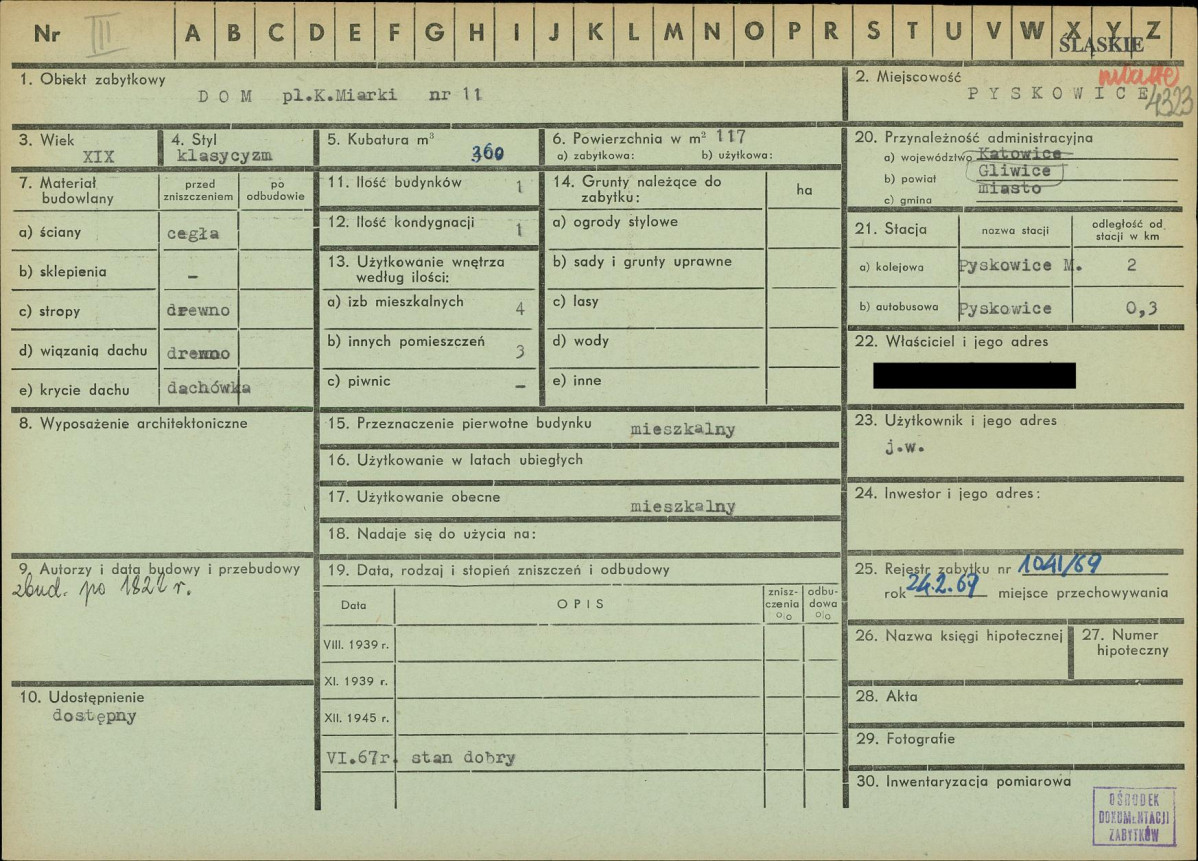 Nr III A B C D E F G H I J K L M N O P R S T U V W X Y Z
ŚLĄSKIE
1. Obiekt zabytkowy
DOM pl.K.Miarki nr 11
2. Miejscowość
miasto
PYSKOWICE
4323
3. Wiek
XIX
4. Styl
klasycyzm
5. Kubatura m³
360
6. Powierzchnia w m² 117
a) zabytkowa: b) użytkowa:
20. Przynależność administracyjna
a) województwo Katowice
b) powiat Gliwice
c) gmina miasto
7. Materiał budowlany
przed zniszczeniem
po odbudowie
a) ściany cegła
b) sklepienia –
c) stropy drewno
d) wiązanią dachu drewno
e) krycie dachu dachówka
11. Ilość budynków 1
12. Ilość kondygnacji 1
13. Użytkowanie wnętrza według ilości:
a) izb mieszkalnych 4
b) innych pomieszczeń 3
c) piwnic –
14. Grunty należące do zabytku:
ha
a) ogrody stylowe
b) sady i grunty uprawne
c) lasy
d) wody
e) inne
21. Stacja
nazwa stacji
odległość od stacji w km
a) kolejowa Pyskowice M. 2
b) autobusowa Pyskowice 0,3
22. Właściciel i jego adres
8. Wyposażenie architektoniczne
15. Przeznaczenie pierwotne budynku mieszkalny
16. Użytkowanie w latach ubiegłych
17. Użytkowanie obecne mieszkalny
18. Nadaje się do użycia na:
23. Użytkownik i jego adres
j.w.
24. Inwestor i jego adres:
9. Autorzy i data budowy i przebudowy
zbud. po 1822 r.
10. Udostępnienie
dostępny
19. Data, rodzaj i stopień zniszczeń i odbudowy
Data
OPIS
znisz-czenia o/o
odbu-dowa o/o
VIII. 1939 r.
XI. 1939 r.
XII. 1945 r.
VI.67r. stan dobry
25. Rejestr zabytku nr 1041/69
rok 24.2.69 miejsce przechowywania
26. Nazwa księgi hipotecznej
27. Numer hipoteczny
28. Akta
29. Fotografie
30. Inwentaryzacja pomiarowa
OŚRODEK
DOKUMENTACJI
ZABYTKÓW